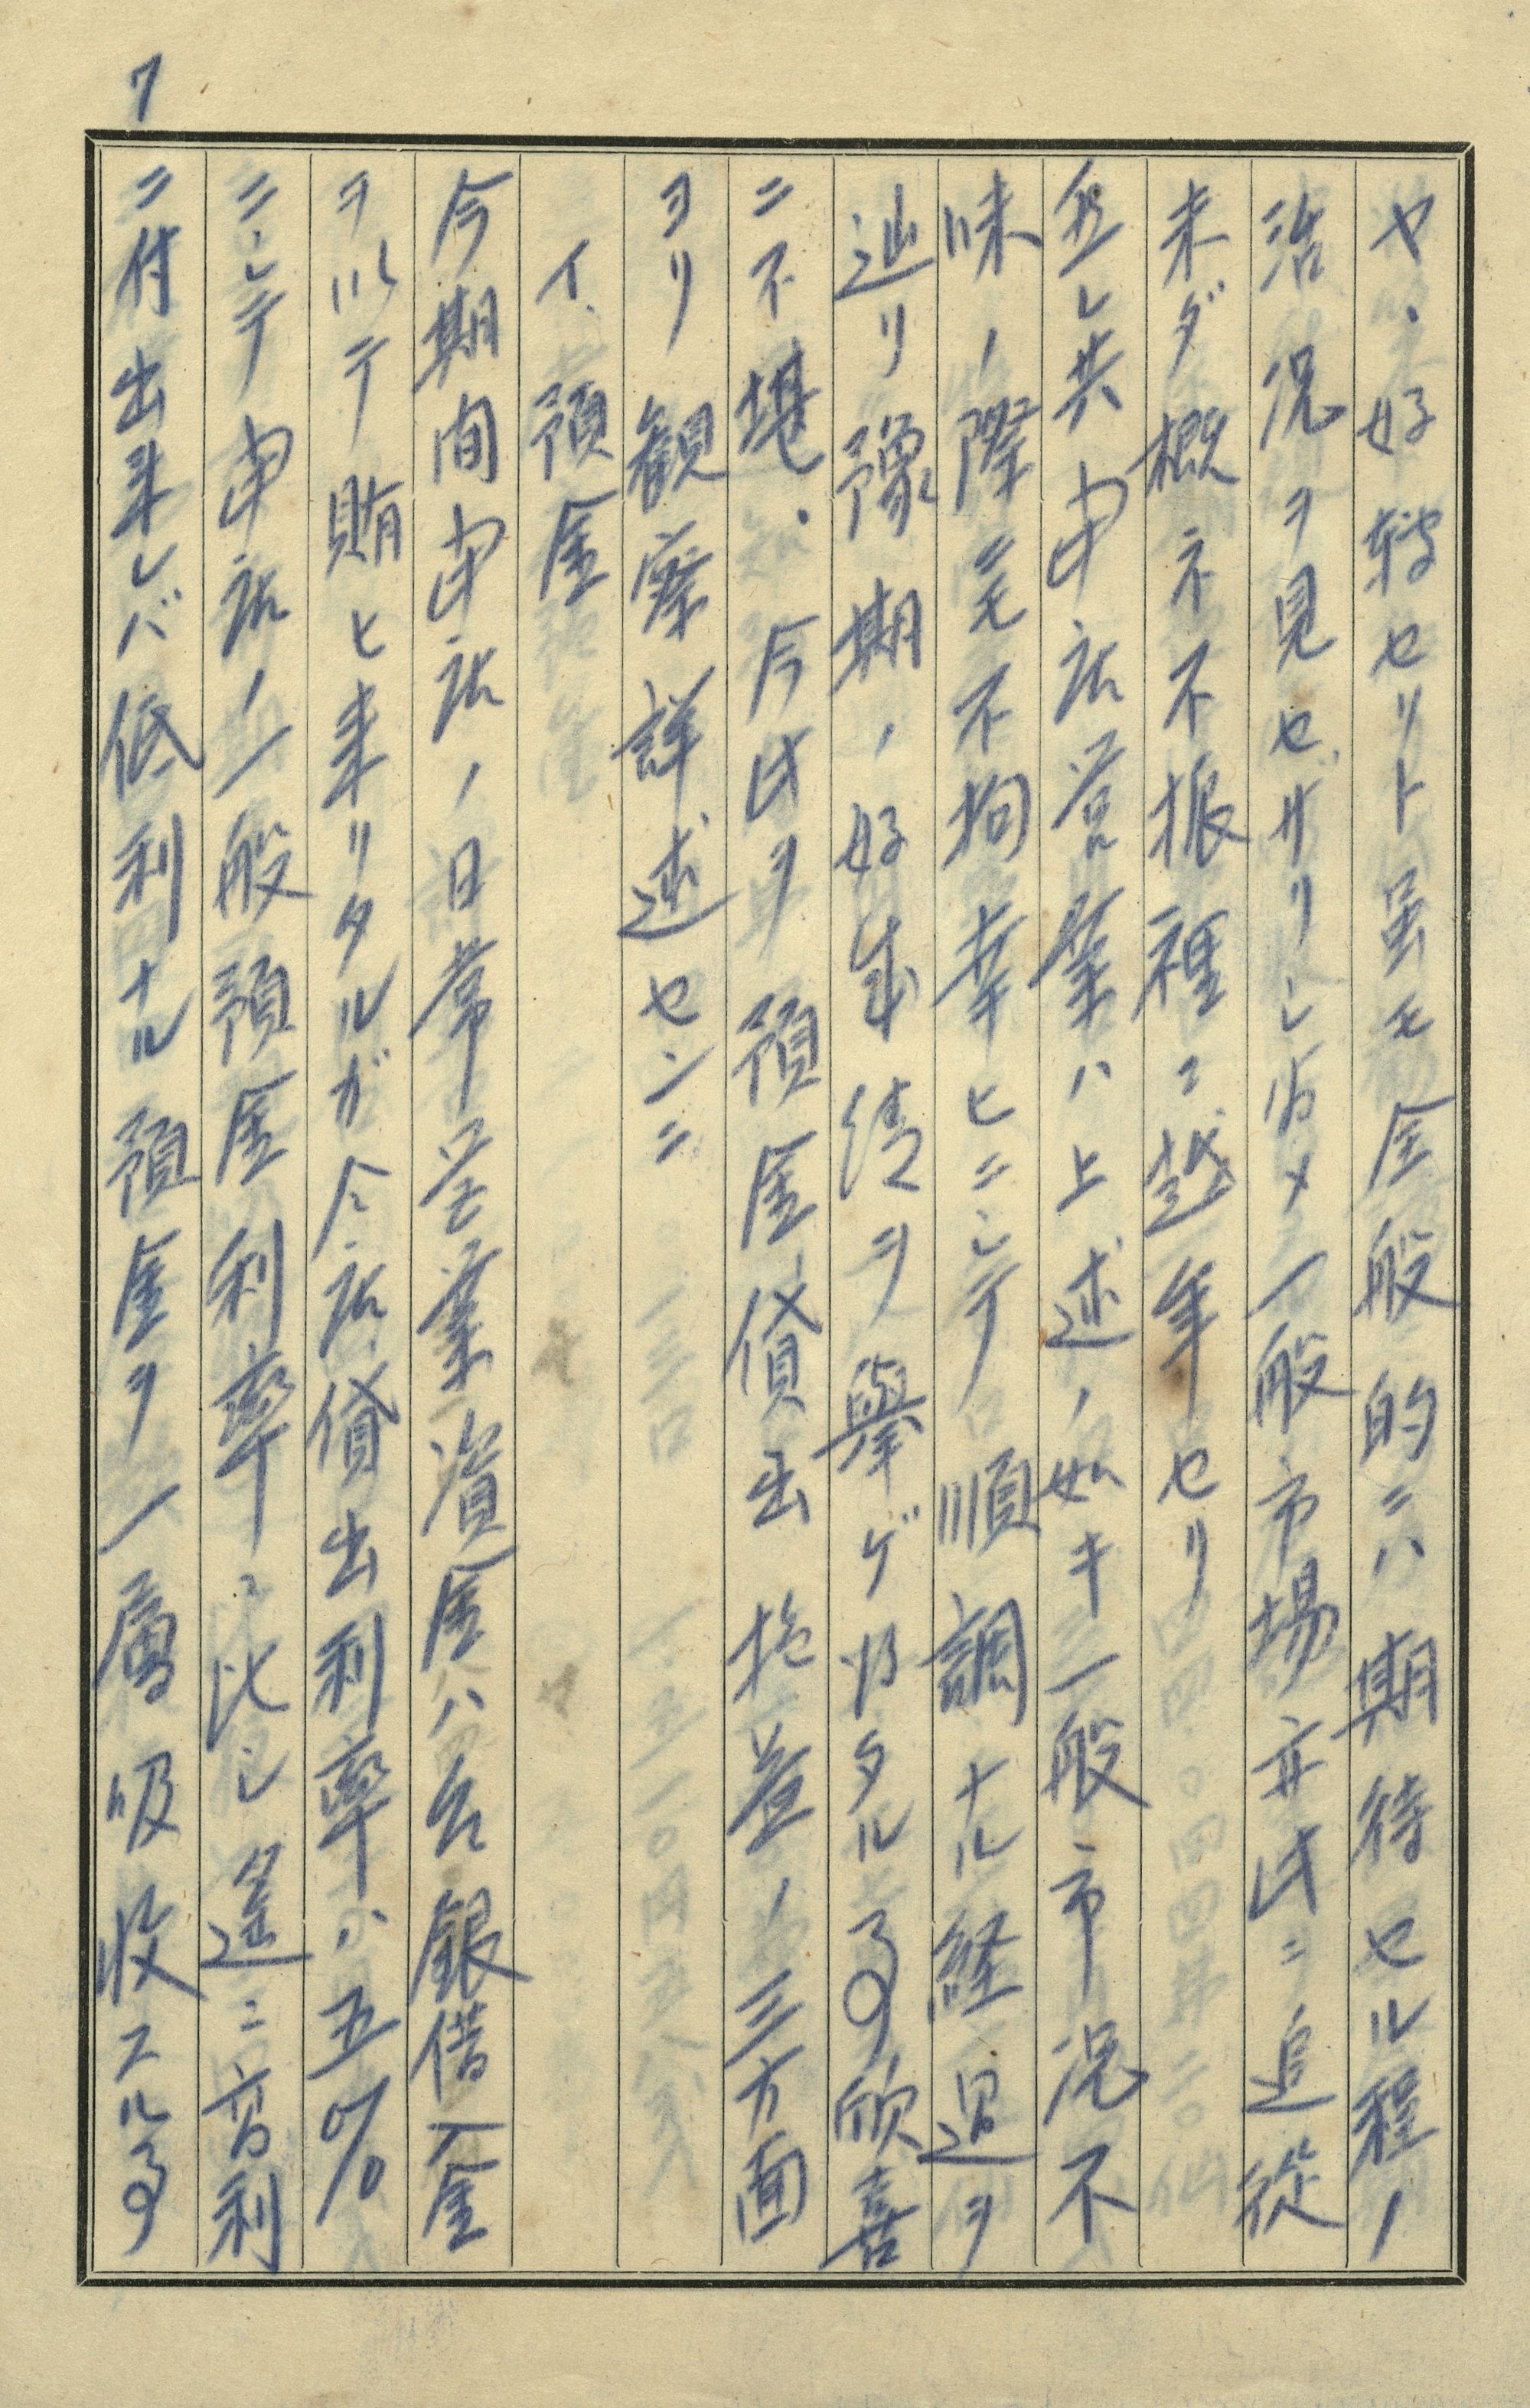 7
ヤヽ好轉セリト虽モ全般的ニハ期待セル程ノ
活況ヲ見セザリシ為メ一般市場亦此ニ追從
未ダ概ネ不振裡ニ越年セリ
然レ共弗訟営業ハ上述ノ如キ一般市況不
味ノ際ニモ不拘幸ヒニシテ順調ナル経過ヲ
辿リ豫期ノ好成績ヲ擧ゲ得タル事欣喜
ニ不堪、今此ヲ預金貸出拖益ノ三方面
ヨリ観察詳述センニ
イ、預金
今期間ノ日常営業資金ハ台銀借入金
ヲ以テ賄ヒ来リタルガ今貸出利率ハ五%
ニシテノ一般預金利率ニ比シ遥ニ高利
ニ付出来レバ低利ナル預金ヲ一層吸收スル事